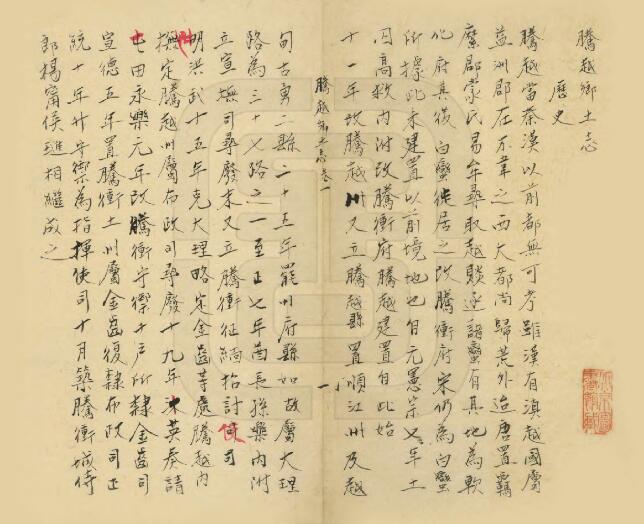 騰越鄉土志
歷史
騰越當秦漢以前都無可考雖漢有滇越國屬
益州郡在不韋之西大都尚歸荒外迨唐置羈
縻郡蒙氏易牟尋取越賧逐諸蠻有其地為軟
化府其後白蠻徙居之改騰衝府宋仍為白蠻
所據此未建置以前境地也自元憲宗七年土
囚高救內附改騰衝府騰越建置自此始
十一年改騰越州又立騰越縣置順江州及越
騰越鄉土志卷一
一
甸古勇二縣二十五年罷州府縣如故屬大理
路為三十七路之一至正七年酋長孫樂內附
立宣撫司尋廢末又立騰衝征緬招討使司
明洪武十五年克大理略定金齒等處騰越內
撫定騰越州屬布政司尋廢十九年沐英奏請
屯田永樂元年改騰衝守禦千戶所隸金齒司
宣德五年置騰衝土州屬金齒復隸布政司正
統十年升守禦為指揮使司十月築騰衝城侍
郎楊甯侯璡相繼成之